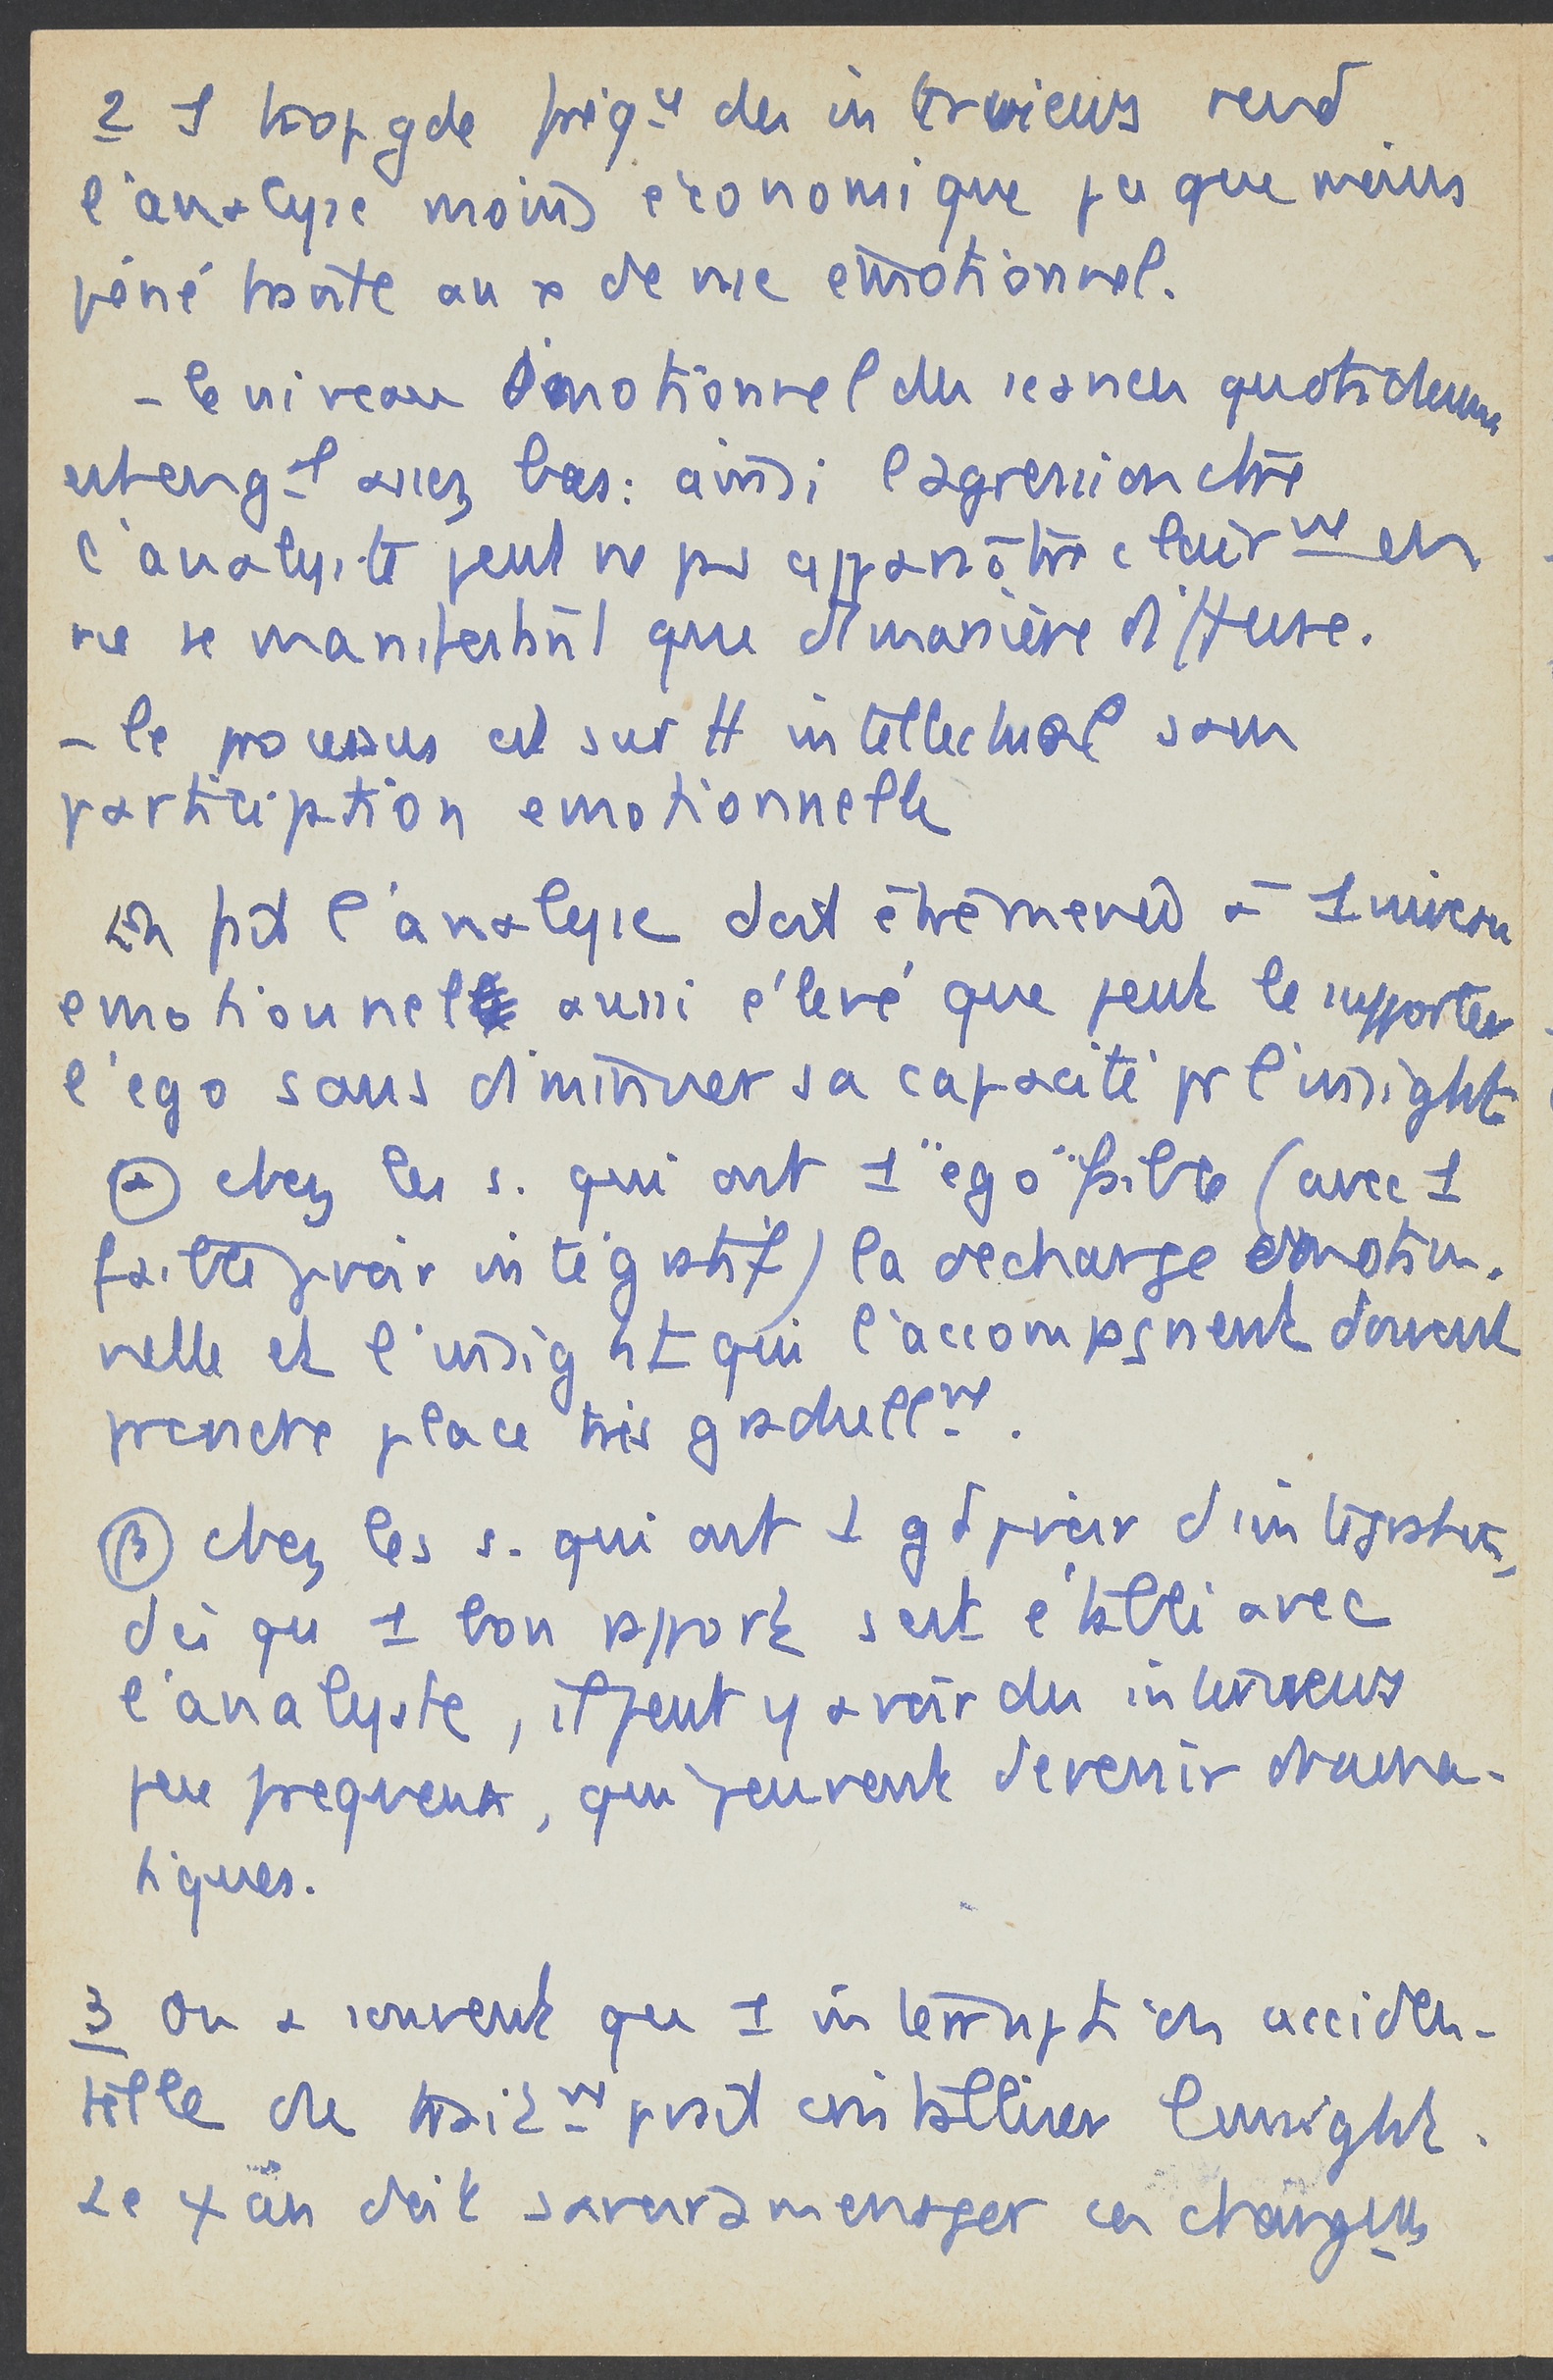 2 1 trop gde fréqce des interviews rend
l'analyse moins économique pcq que moins
pénétrante au x de vue émotionnel.
- le niveau émotionnel des séances quotidiennes
est en gal assez bas : ainsi l'agression ctre
l'analyste peut ne pas apparaître clairmt en
ne se manifestant que d'manière diffuse.
- le processus est surtt intellectual sans
participation emotionnelle
En fait l'analyse doit être menée à 1 niveau
emotionnel aussi élevé que peut le supporter
l'ego sans diminuer sa capacité pr l'insight
α chez les s. qui ont 1 "ego" faible (avec 1
faible pvoir intégratif) la decharge emotion-
nelle et l'insight qui l'accompagnent doivent
prendre place très graduellmt.
β chez les s. qui ont 1 gd pvoir d'intégration,
dès que 1 bon rapport s'est établi avec
l'analyste, il peut y avoir des interviews
peu frequents, qui peuvent devenir drama-
tiques.
3 On a souvent que 1 interruption acciden-
telle de traitmt pvait cristalliser l'insight.
Le ψan doit savoir amenager ces changts